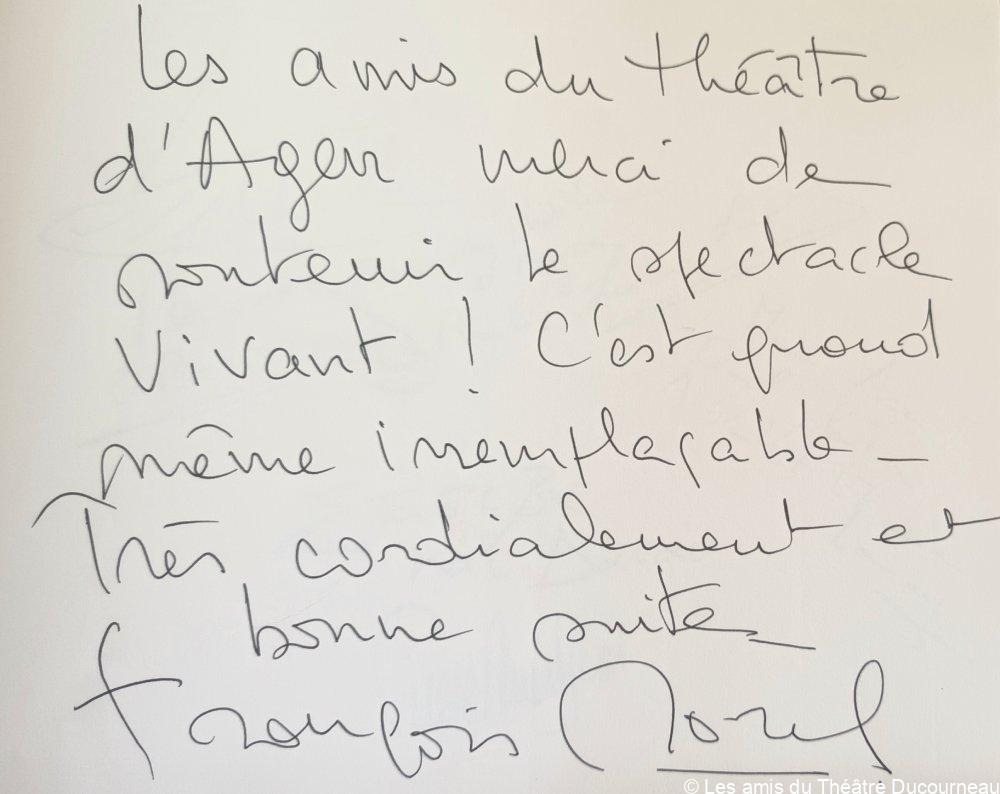 Les amis du théâtre
d'Agen merci de
soutenir le spectacle
vivant ! C'est quand
même irremplaçable –
Très cordialement et
bonne suite
François Morel
© Les amis du Théâtre Ducourneau